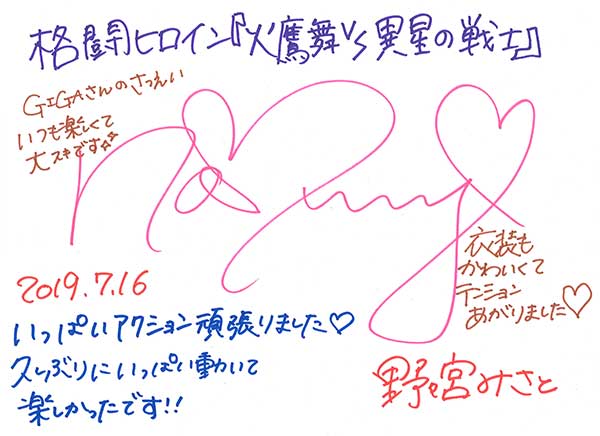 格闘ヒロイン『火鷹舞VS異星の戦士』
GIGAさんのさつえい
いつも楽しくて
大スキです☆☆
衣装も
かわいくて
テンション
あがりました♡
2019.7.16
いっぱいアクション頑張りました♡
久しぶりにいっぱい動いて
楽しかったです!!
野宮みさと